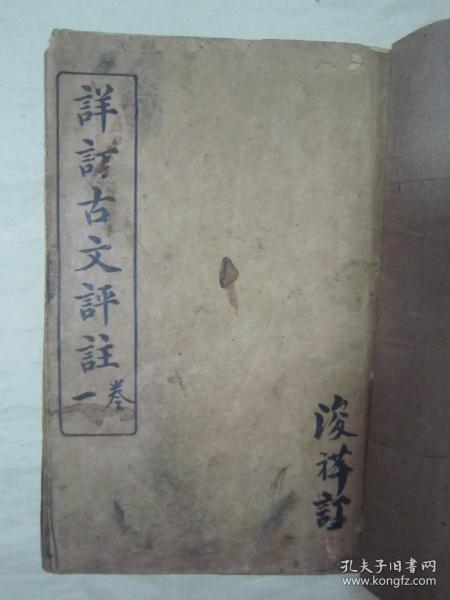 詳訂古文評註
卷一
浚祥訂
孔夫子旧书网
www.kongfz.com